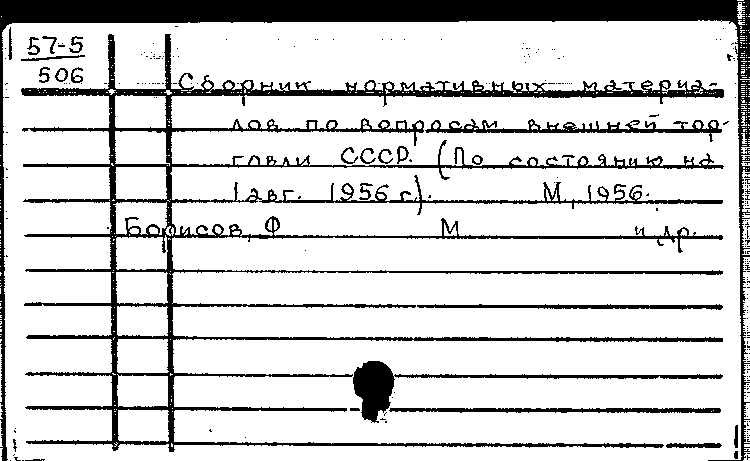 57-5
506
Сборник нормативных материа-
лов по вопросам внешней тор-
говли СССР. (По состоянию на
1 авг. 1956 г.). М., 1956.
Борисов, Ф М и др.